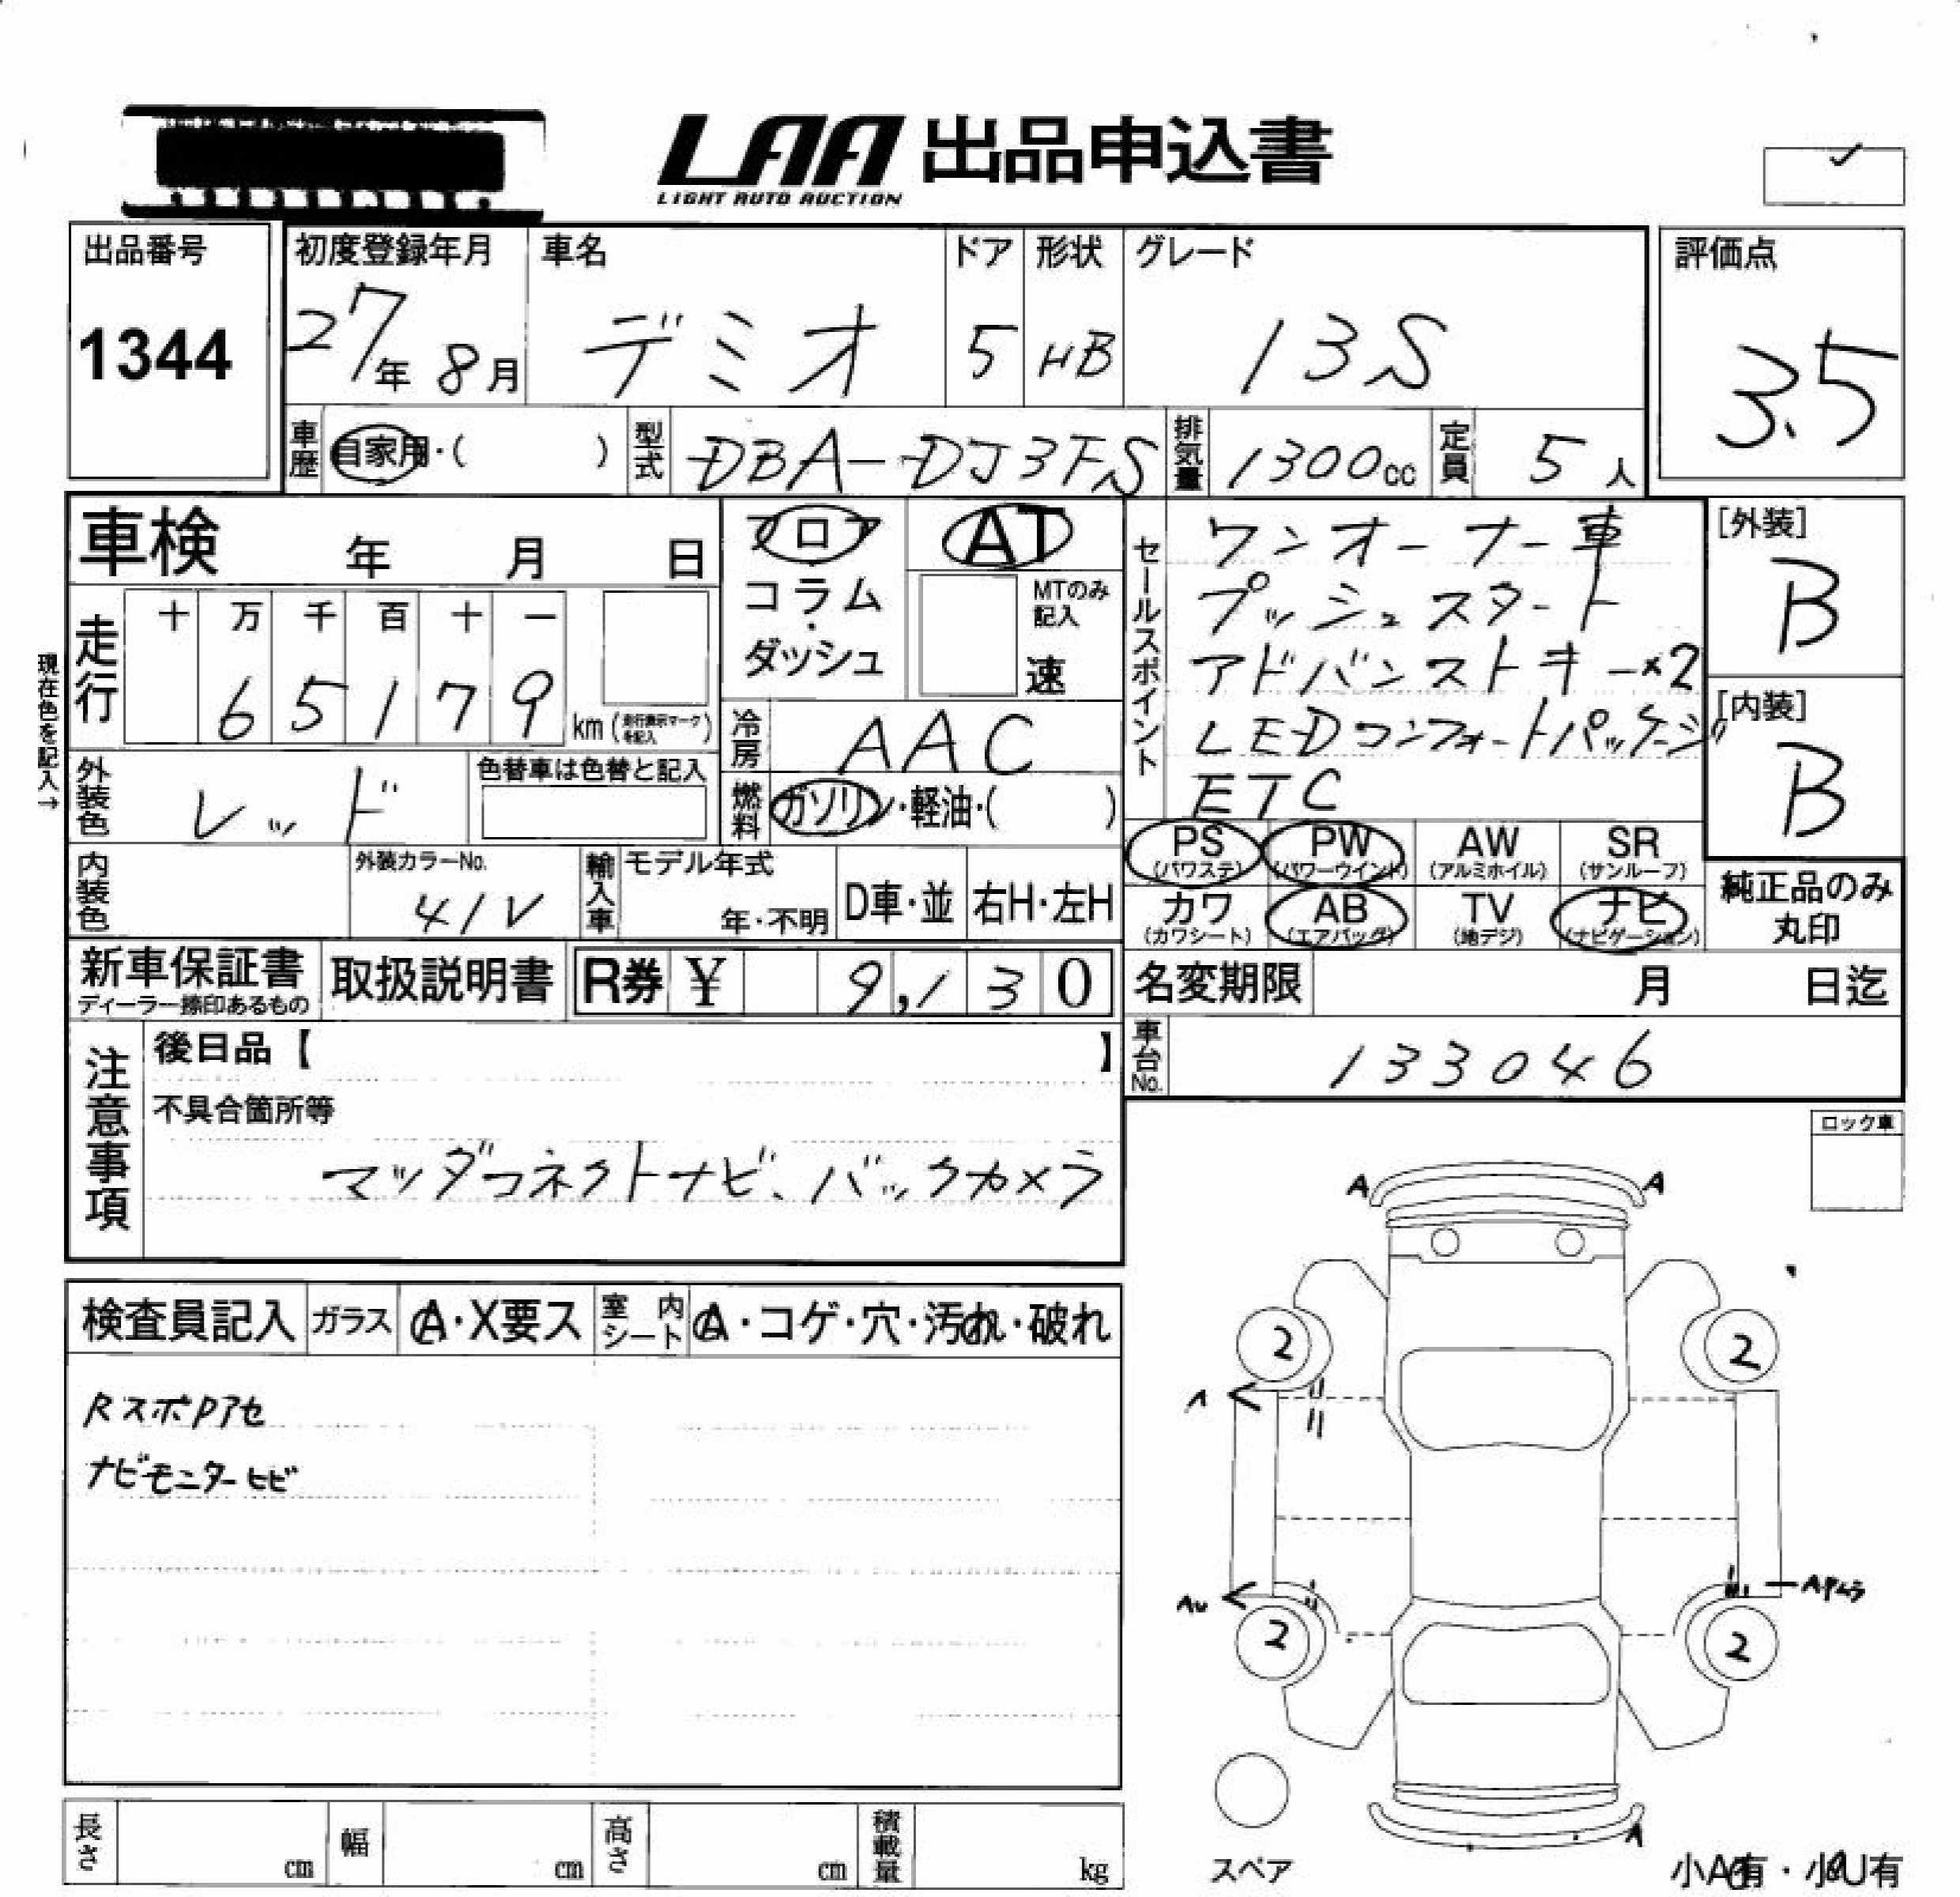 LAA 出品申込書
LIGHT AUTO AUCTION
出品番号
1344
初度登録年月
27年 8月
車名
デミオ
ドア
5
形状
HB
グレード
13S
評価点
3.5
車歴 自家用・( )
型式 DBA-DJ3FS
排気量 1300cc
定員 5人
車検 年 月 日
フロア
コラム
・
ダッシュ
AT
MTのみ
記入
速
セールスポイント
ワンオーナー車
プッシュスタート
アドバンストキー×2
LEDコンフォートパッケージ
ETC
[外装]
B
[内装]
B
現在色を記入→
走行
十 万 千 百 十 一
6 5 1 7 9 km (走行表示マークを記入)
冷房 AAC
外装色 レッド
色替車は色替と記入
燃料 ガソリン・軽油・( )
PS (パワステ)
PW (パワーウインド)
AW (アルミホイル)
SR (サンルーフ)
カワ (カワシート)
AB (エアバッグ)
TV (地デジ)
ナビ (ナビゲーション)
純正品のみ
丸印
内装色
外装カラーNo.
41V
輸入車
モデル年式
年・不明
D車・並
右H・左H
新車保証書
ディーラー捺印あるもの
取扱説明書
R券 ¥ 9,130
名変期限 月 日迄
車台No. 133046
注意事項
後日品【 】
不具合箇所等
マツダコネクトナビ、バックカメラ
ロック車
検査員記入
ガラス A・X要ス
室内シート A・コゲ・穴・汚れ・破れ
RスポPアセ
ナビモニターヒビ
A A
2 2
A
AU
2 2
A
スペア
小A有・小U有
長さ cm
幅 cm
高さ cm
積載量 kg